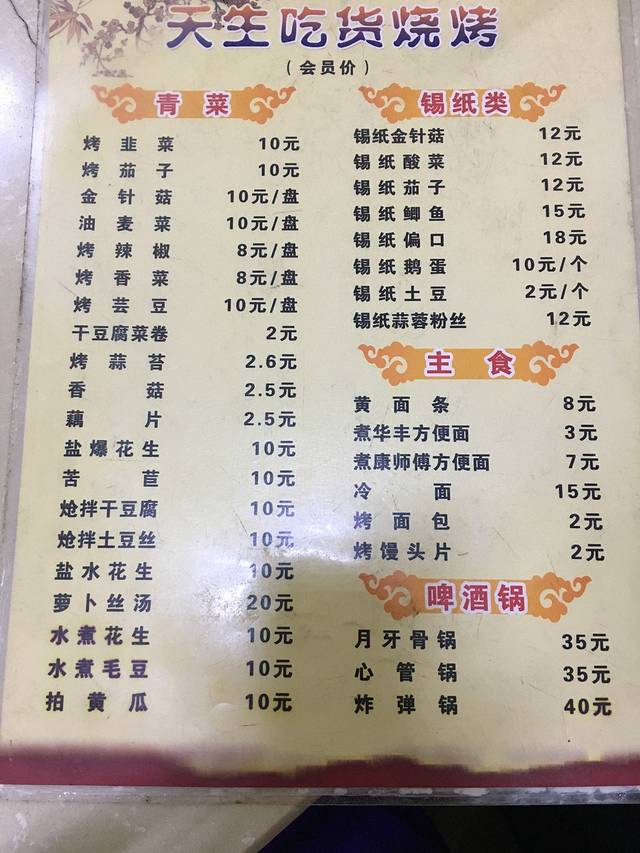 天生吃货烧烤
(会员价)
青菜
烤韭菜 10元
烤茄子 10元
金针菇 10元/盘
油麦菜 10元/盘
烤辣椒 8元/盘
烤香菜 8元/盘
烤芸豆 10元/盘
干豆腐菜卷 2元
烤蒜苔 2.6元
香菇 2.5元
藕片 2.5元
盐爆花生 10元
苦苣 10元
炝拌干豆腐 10元
炝拌土豆丝 10元
盐水花生 10元
萝卜丝汤 20元
水煮花生 10元
水煮毛豆 10元
拍黄瓜 10元
锡纸类
锡纸金针菇 12元
锡纸酸菜 12元
锡纸茄子 12元
锡纸鲫鱼 15元
锡纸偏口 18元
锡纸鹅蛋 10元/个
锡纸土豆 2元/个
锡纸蒜蓉粉丝 12元
主食
黄面条 8元
煮华丰方便面 3元
煮康师傅方便面 7元
冷面 15元
烤面包 2元
烤馒头片 2元
啤酒锅
月牙骨锅 35元
心管锅 35元
炸弹锅 40元